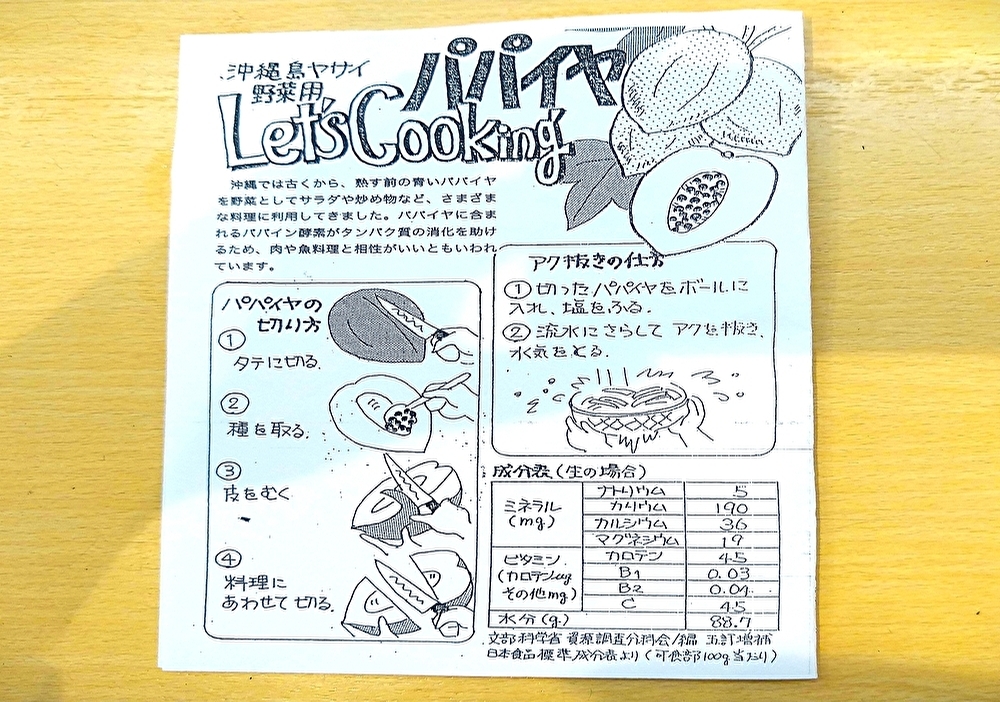 沖縄島ヤサイ
野菜用
パパイヤ
Let's Cooking
沖縄では古くから、熟す前の青いパパイヤ
を野菜としてサラダや炒め物など、さまざま
な料理に利用してきました。パパイヤに含ま
れるパパイン酵素がタンパク質の消化を助け
るため、肉や魚料理と相性がいいともいわれ
ています。
パパイヤの
切り方
①
タテに切る。
②
種を取る。
③
皮をむく
④
料理に
あわせて切る。
アク抜きの仕方
① 切ったパパイヤをボールに
入れ、塩をふる。
② 流水にさらしてアクを抜き、
水気をとる。
成分表(生の場合)
ミネラル
(mg)
ナトリウム 5
カリウム 190
カルシウム 36
マグネシウム 19
ビタミン
(カロテンug
その他mg)
カロテン 45
B1 0.03
B2 0.04
C 45
水分(g) 88.7
文部科学省 資源調査分科会/編 五訂増補
日本食品標準成分表より(可食部100g当たり)